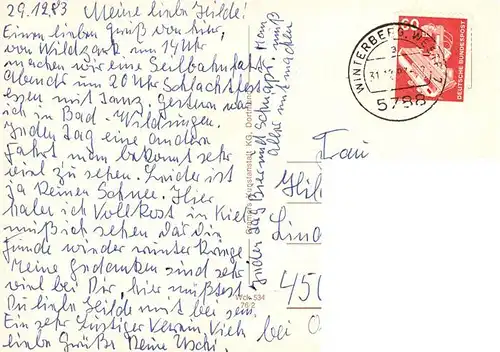 29.12.83 Meine liebe Hilde!
Einen lieben Gruß von hier,
von Wildpark um 14 Uhr
machen wir eine Seilbahnfahrt
Abends um 20 Uhr Schlachtfest
essen mit Tanz. Gestern war
ich in Bad-Wildungen.
Jeden Tag eine andere
Fahrt man bekomt sehr
viel zu sehen. Leider ist
ja keinen Schnee. Hier
habe ich Vollkost in Kiel
muß ich sehen das die
Pfunde wieder runter kriege
Meine Gedanken sind sehr
viel bei Dir, hier müßtest
Du liebe Hilde mit bei sein.
Ein sehr lustiger Verein. Viele
liebe Grüße Deine Uschi.
jeden Tag Bier und Schnaps. Man muß
alles mit machen
Kunstanstalt KG, Dortmund
Wck 534
76-2
WINTERBERG, WESTF 1
31.12.83
5788
80
DEUTSCHE BUNDESPOST
Frau
Hil
Lind
450
bei